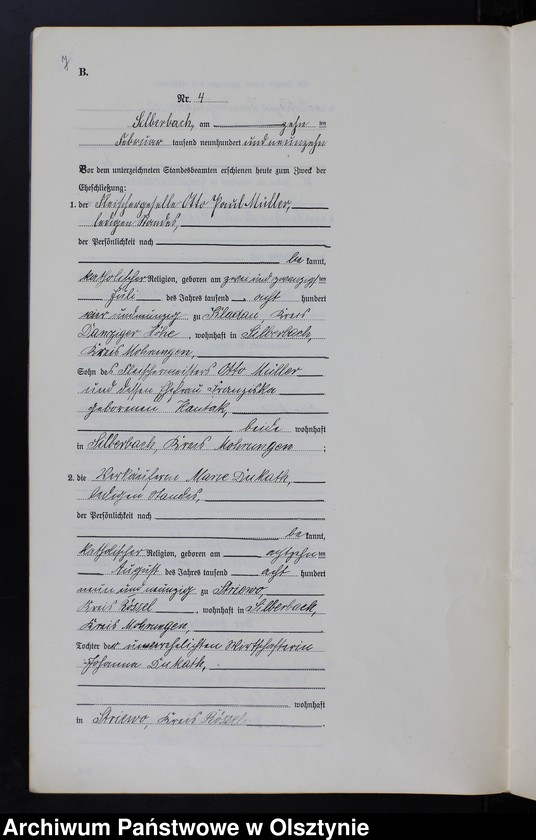 B.
Nr. 4
Silberbach, am zehn ten
Februar tausend neunhundert und neunzehn
Vor dem unterzeichneten Standesbeamten erschienen heute zum Zweck der
Eheschließung:
1. der Fleischergeselle Otto Paul Müller,
ledigen Standes,
der Persönlichkeit nach
be kannt,
katholischer Religion, geboren am zwei und zwanzigsten
Juli des Jahres tausend acht hundert
vier und neunzig zu, Kreis
Danziger Höhe, wohnhaft in Silberbach,
Kreis Mohrungen,
Sohn des Fleischermeisters Otto Müller
und dessen Ehefrau Franziska
geborenen Kantak,
beide wohnhaft
in Silberbach, Kreis Mohrungen;
2. die Verkäuferin Marie Dukath,
ledigen Standes,
der Persönlichkeit nach
be kannt,
katholischer Religion, geboren am achtzehn ten
August des Jahres tausend acht hundert
neun und neunzig zu Striewo,
Kreis Rössel, wohnhaft in Silberbach,
Kreis Mohrungen,
Tochter der unverehelichten Wirtschafterin
Johanna Dukath,
wohnhaft
in Striewo, Kreis Rössel.
Archiwum Państwowe w Olsztynie